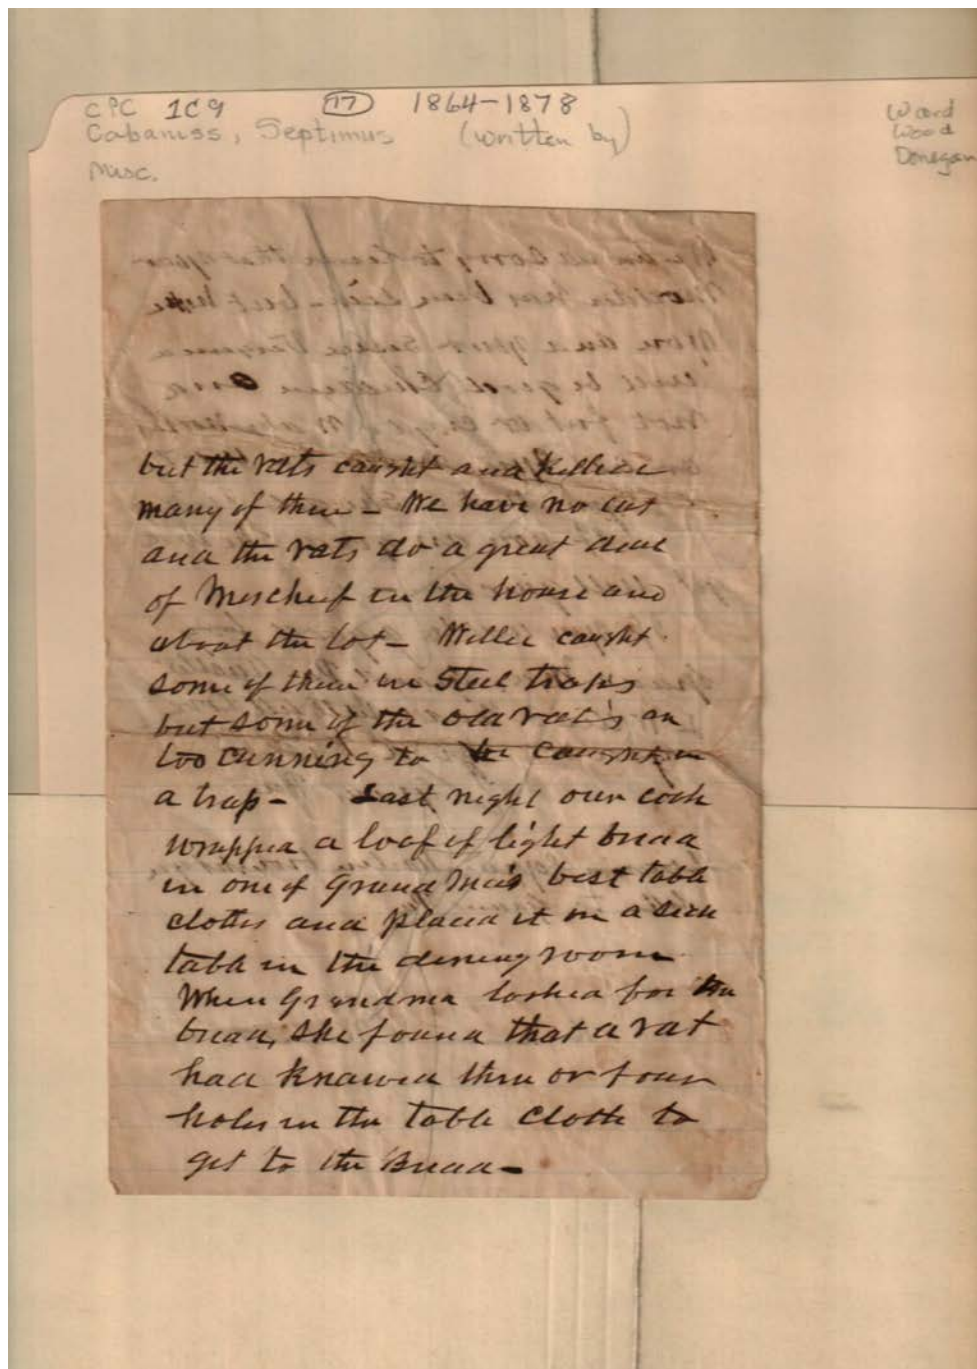 CPC 1C9 17 1864-1878
Cabaniss, Septimus (written by)
Misc.
Ward
Wood
Donegan
but the rats caught and killed
many of them - We have no cat
and the rats do a great deal
of Mischief in the house and
about the lot - Willie caught
some of them in Steel traps
but some of the old rats an
too cunning to be caught in
a trap - Last night our cook
wrapped a loaf of light bread
in one of Grand Ma's best table
cloths and placed it on a side
table in the dining room
When Grandma looked for the
bread, she found that a rat
had knawed three or four
holes in the table cloth to
get to the Bread -